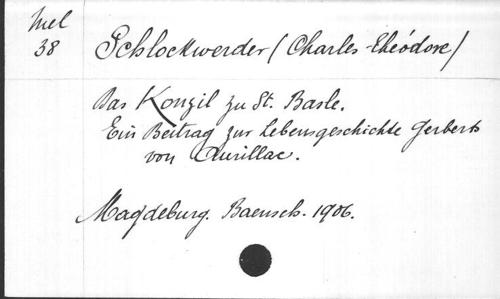 Mel
38
Schlockwerder (Charles-Théodore)
Das Konzil zu St. Basle.
Ein Beitrag zur Lebensgeschichte Gerberts
von Aurillac.
Magdeburg. Baensch. 1906.